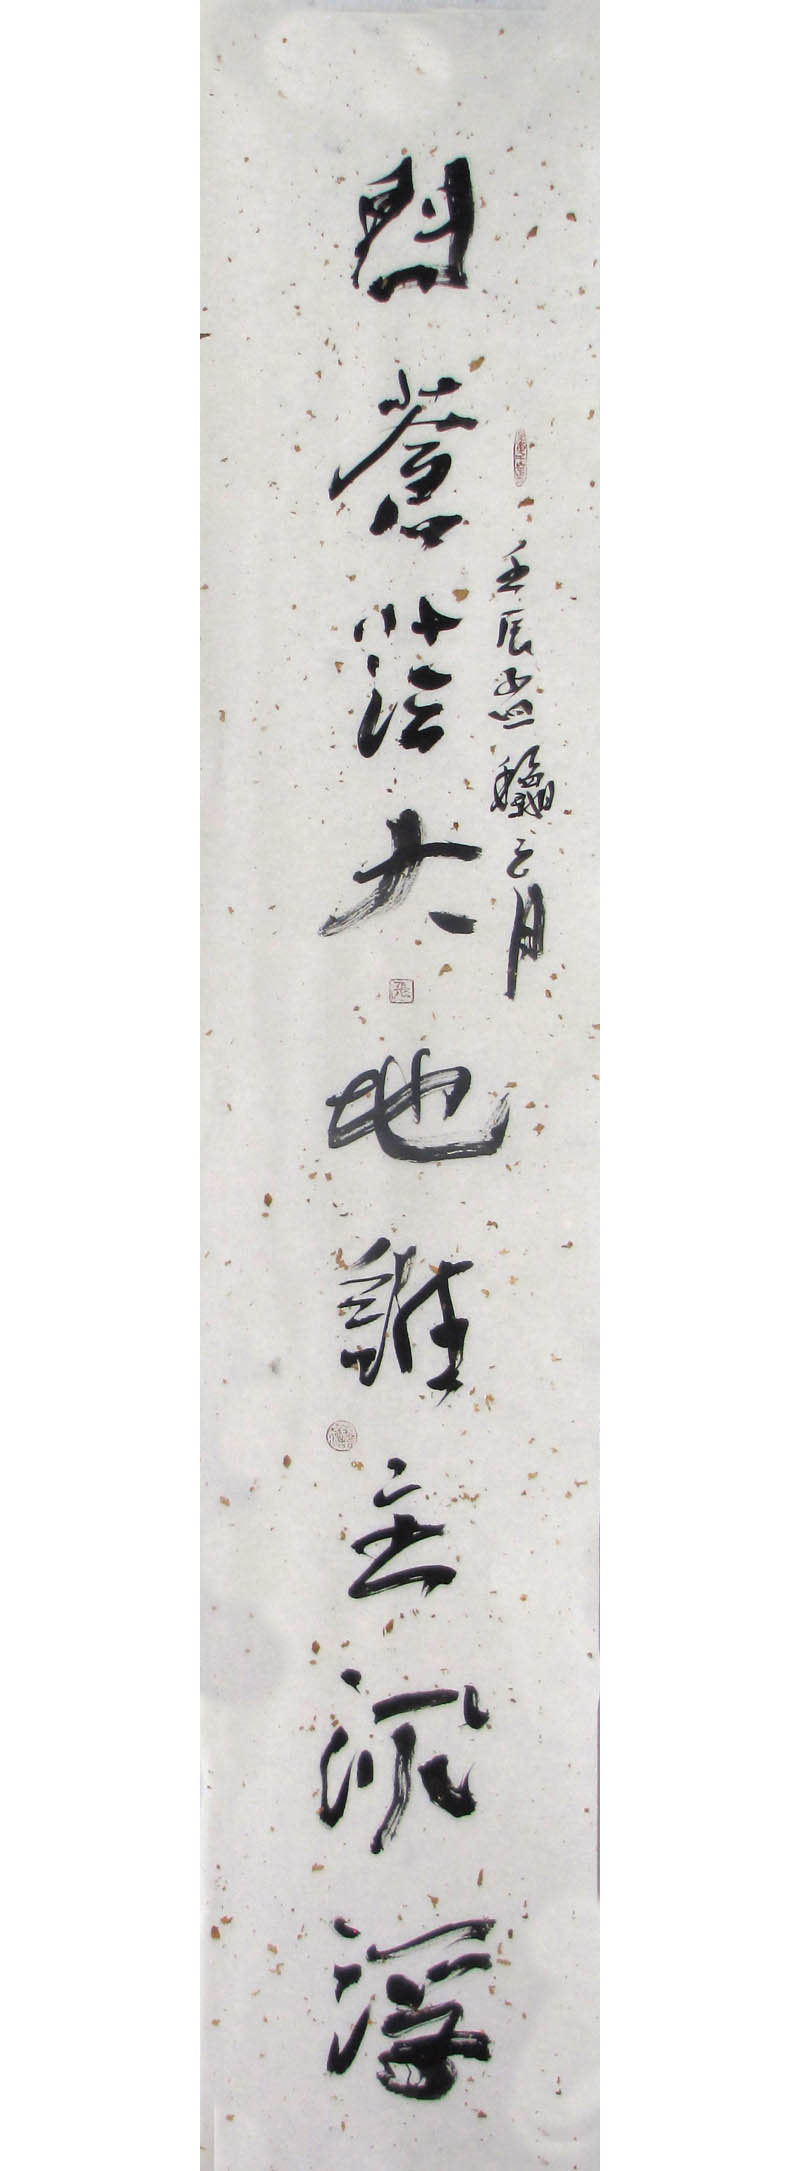 壬辰孟龝之月
問蒼茫大地誰主沉浮